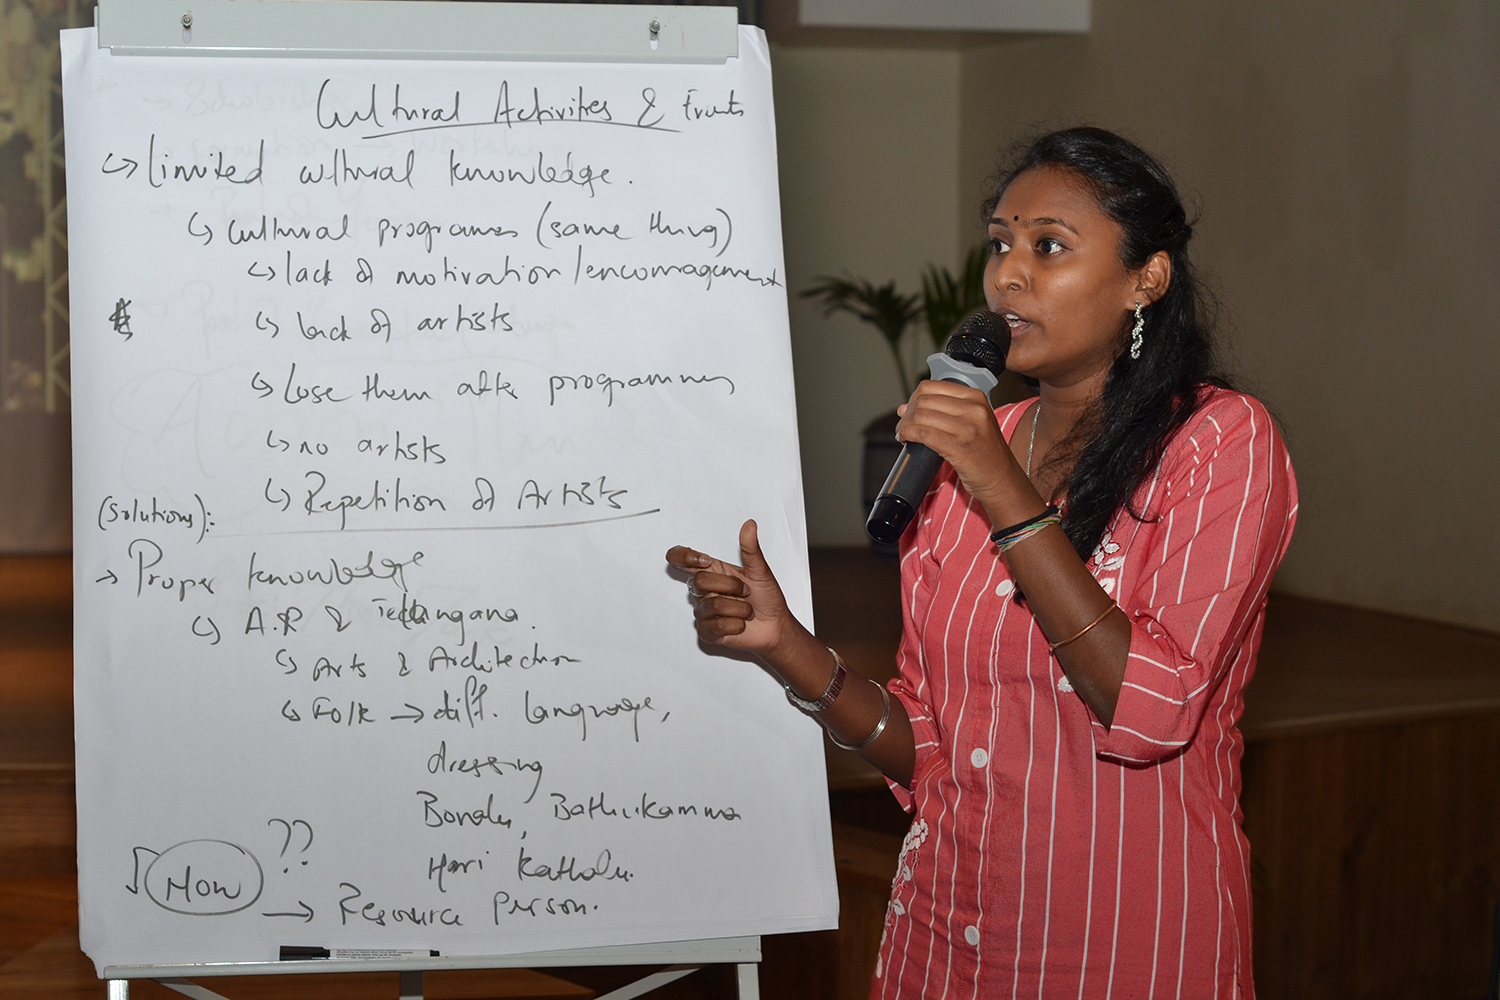 Cultural Activities & Events
↳ Limited cultural knowledge.
↳ cultural programes (same thing)
↳ lack of motivation/encouragement
↳ lack of artists
↳ Lose them after programmes
↳ no artists
↳ Repetition of Artists
(solutions):-
→ Proper knowledge
↳ A.P & Telangana.
↳ Arts & Architecture
↳ Folk → diff. language,
dressing
Bonalu, Bathukamma
Hari Kathalu.
How ??
→ Resource person.